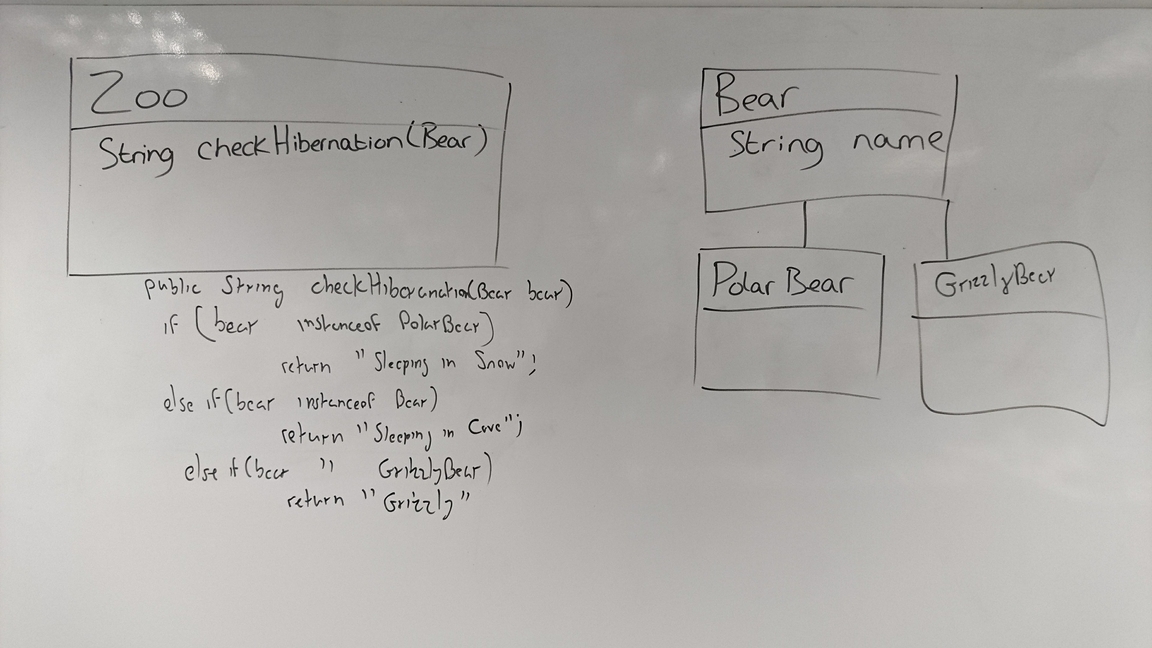 Zoo
String checkHibernation(Bear)
public String checkHiberanation(Bear bear)
if (bear instanceof PolarBear)
return "Sleeping in Snow";
else if(bear instanceof Bear)
return "Sleeping in Cave";
else if(bear " GrizzlyBear)
return "Grizzly"
Bear
String name
Polar Bear
GrizzlyBear